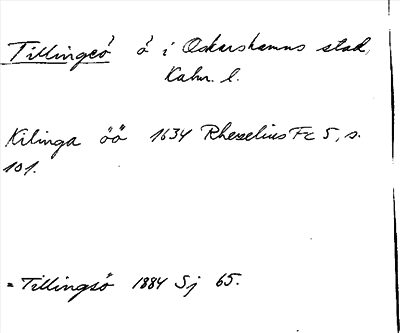 Tillingeö ö i Oskarshamns stad,
Kalm. l.
Kilinga öö 1634 Rhezelius Fc 5, s.
101.
= Tillingsö 1884 Sj 65.